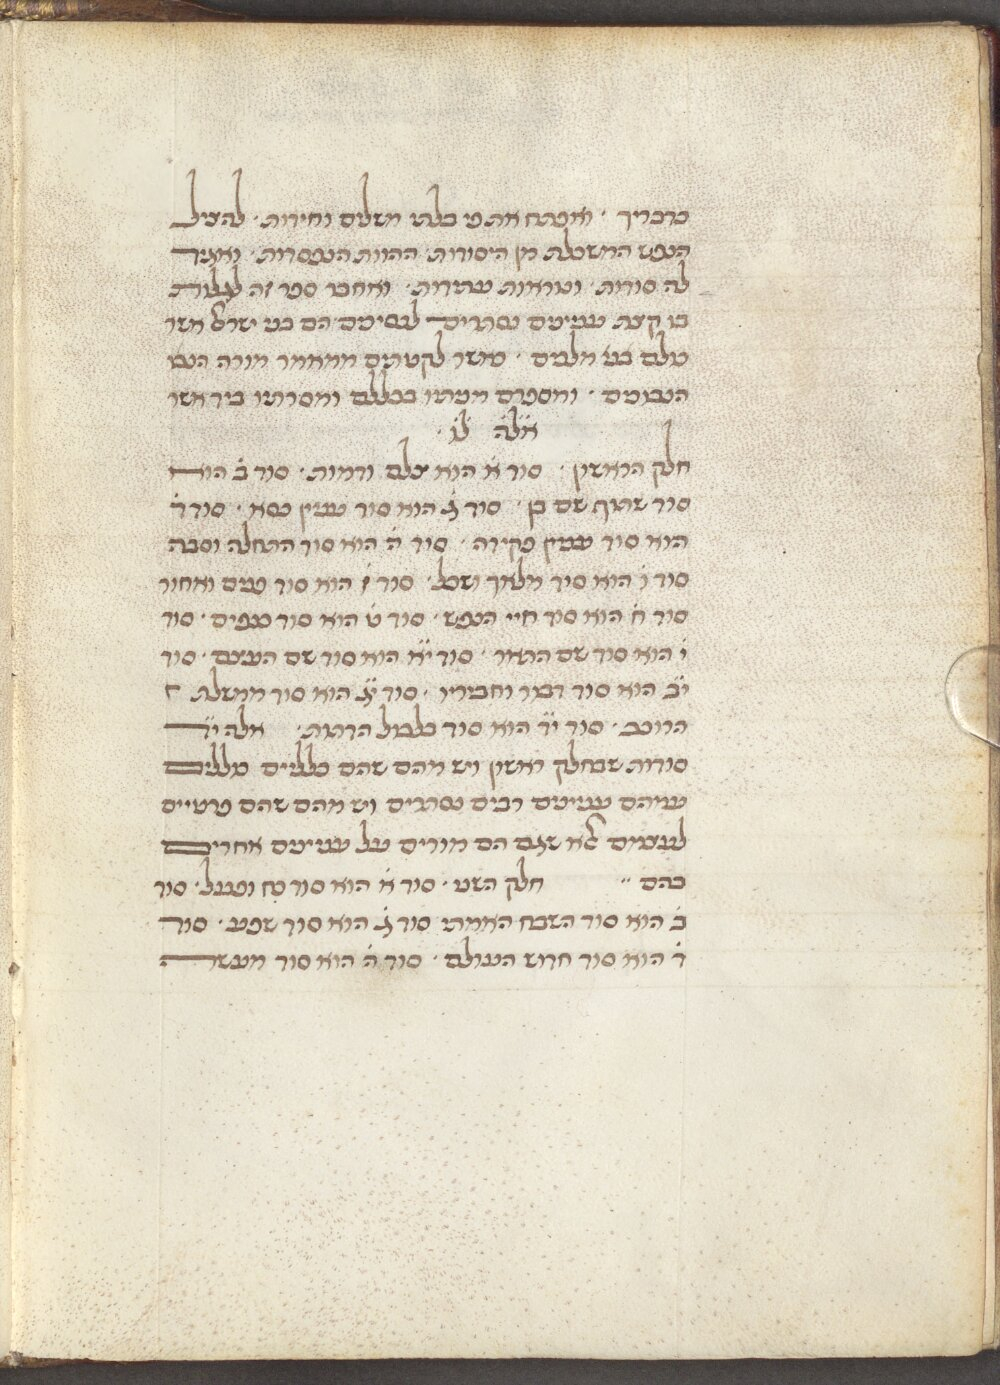 כדבריך · ואפתח את פי בלתי משלים וחידות · להציל
הנפש המשכלת מן היסודות ההוות הנפסדות · ואגיד
לה סודות · ונוראות עתידות · ואחבר ספר זה לגלות
בו קצת ענינים נסתרים לנסיכים הם בני ישראל אשר
כולם בני מלכים · אשר לקטתים ממאמר מורה הנבו
הנבוכים · ומספרם מניתי בכללם ומסרתיו ביד אשר
אלה לו ·
חלק הראשון · סוד א הוא צלם ודמות · סוד ב הוא
סוד שתוף שם בן · סוד ג הוא סוד ענין כסא · סוד ד
הוא סוד ענין פקידה · סוד ה הוא סוד התחלה וסבה
סוד ו הוא סוד מלאך ושכל · סוד ז הוא סוד פנים ואחור
סוד ח הוא סוד חיי הנפש · סוד ט הוא סוד כנפים · סוד
י הוא סוד שם התאר · סוד י״א הוא סוד שם העצם · סוד
י״ב הוא סוד דבור וחבוריו · סוד י״ג הוא סוד ממשלת
הרוכב · סוד י״ד הוא סוד בלבול הדתות · אלה י״ד
סודות שבחלק ראשון ויש מהם שהם כלליים כוללים
עמהם ענינים רבים נסתרים ויש מהם שהם פרטיים
לעצמים לא שגם הם מורים על ענינים אחרים
בהם · חלק השני · סוד א הוא סוד כח וגלגל · סוד
ב הוא סוד השבח האמתי סוד ג הוא סוד שפע · סוד
ד הוא סוד חדוש העולם · סוד ה הוא סוד מעשה